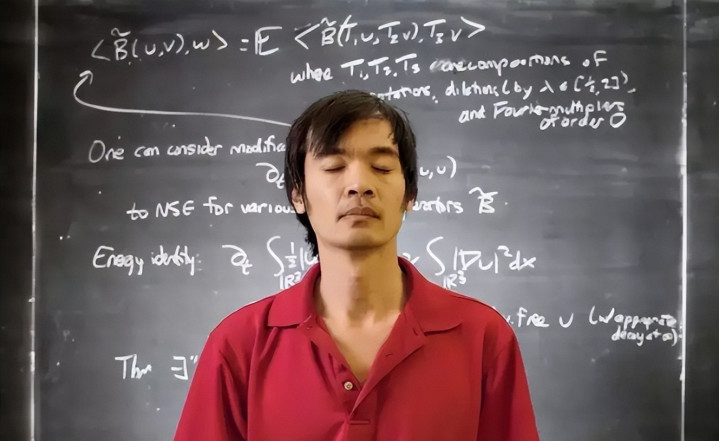 ⟨B̃(u,v),w⟩ = 𝔼 ⟨B̃(T₁u,T₂v),T₃v⟩
where T₁,T₂,T₃ are compositions of
rotations, dilating (by λ ∈ [½,2]),
and Fourier multipliers
of order 0
One can consider modifica
∂t u,u)
to NSE for various B̃.
Energy identity: ∂t ∫ℝ³ ½|u ∫ℝ³ |∇u|²dx
free u (w/ appropriate
decay at ∞)
Thm ∃"